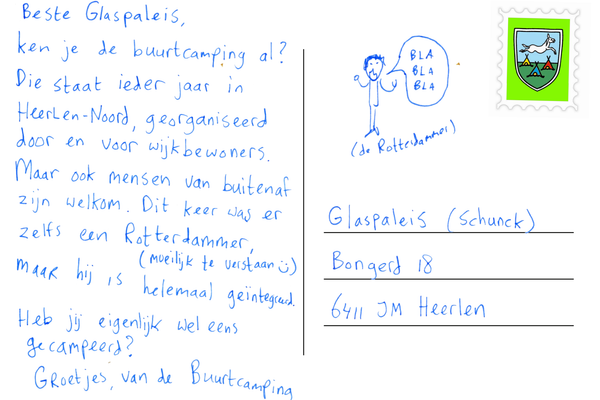 Beste Glaspaleis,
ken je de buurtcamping al?
Die staat ieder jaar in
Heerlen-Noord, georganiseerd
door en voor wijkbewoners.
Maar ook mensen van buitenaf
zijn welkom. Dit keer was er
zelfs een Rotterdammer,
(moeilijk te verstaan ü)
maar hij is helemaal geïntegreerd.
Heb jij eigenlijk wel eens
gecampeerd?
Groetjes, van de Buurtcamping
BLA
BLA
BLA
(de Rotterdammer)
Glaspaleis (Schunck)
Bongerd 18
6411 JM Heerlen